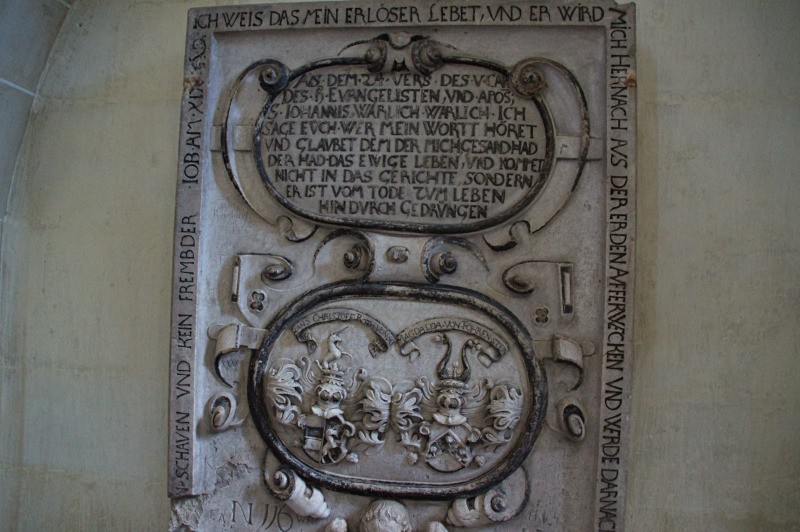 ICH WEIS DAS MEIN ERLÖSER LEBET, VND ER WIRD
MICH HERNACH AVS DER ERDEN AVFERWECKEN VND WERDE DARNAC
SCHAVEN VND KEIN FREMBDER
IOB AM XIX
AVS DEM 24 VERS DES V CAP
DES H EVANGELISTEN, VND APOS,
S IOHANNIS, WARLICH WARLICH ICH
SAGE EVCH WER MEIN WORTT HÖRET
VND GLAVBET DEM DER MICH GESAND HAD
DER HAD DAS EWIGE LEBEN, VND KOMMET
NICHT IN DAS GERICHTE, SONDERN,
ER IST VOM TODE ZVM LEBEN
HINDVRCH GEDRVNGEN
HANS CHRISTOFFER
MAGDALENA VON
N 116